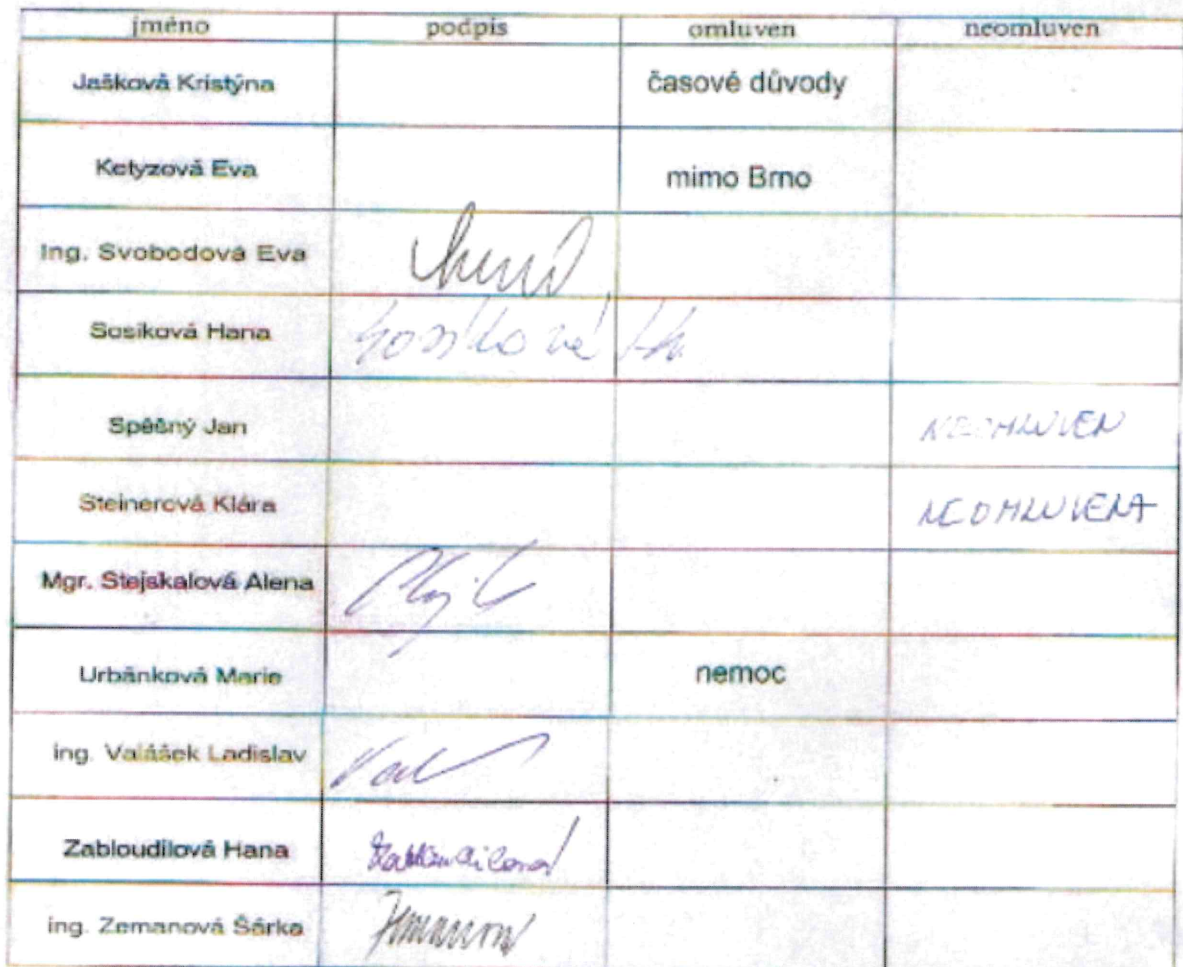 jméno podpis omluven neomluven
Jašková Kristýna časové důvody
Ketyzová Eva mimo Brno
Ing. Svobodová Eva
Sosíková Hana Sosíková Ha
Spěšný Jan NEOMLUVEN
Steinerová Klára NEOMLUVENA
Mgr. Stejskalová Alena
Urbánková Marie nemoc
ing. Valášek Ladislav
Zabloudilová Hana Zabloudilová
ing. Zemanová Šárka